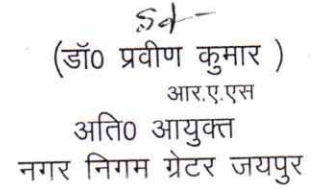 Sd-
(डॉ0 प्रवीण कुमार )
आर.ए.एस
अति0 आयुक्त
नगर निगम ग्रेटर जयपुर